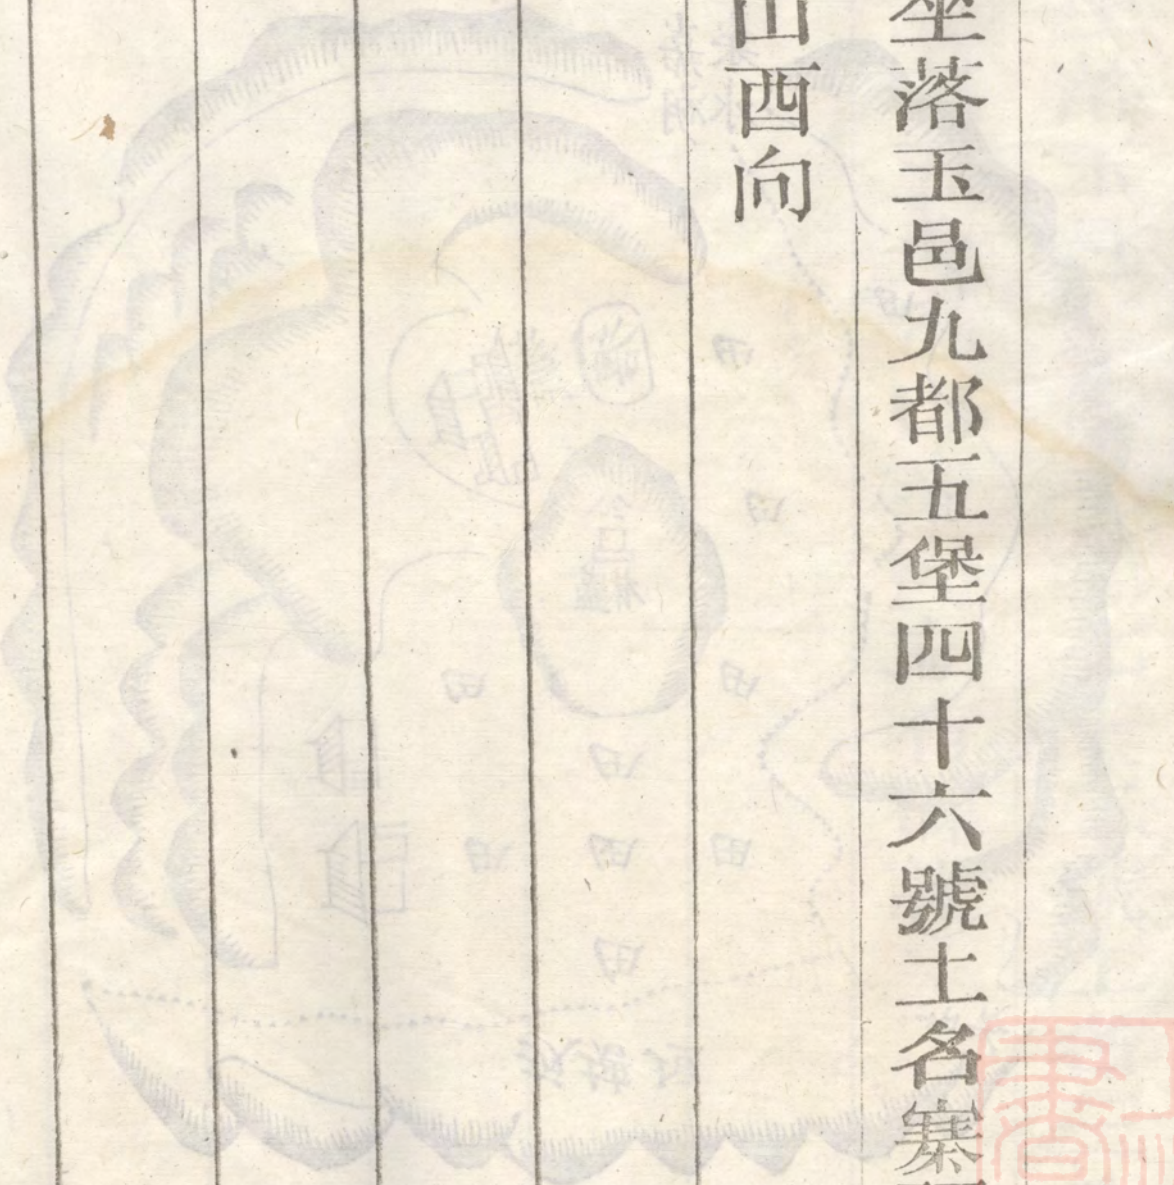 坐落玉邑九都五堡四十六號土名寨
山酉向